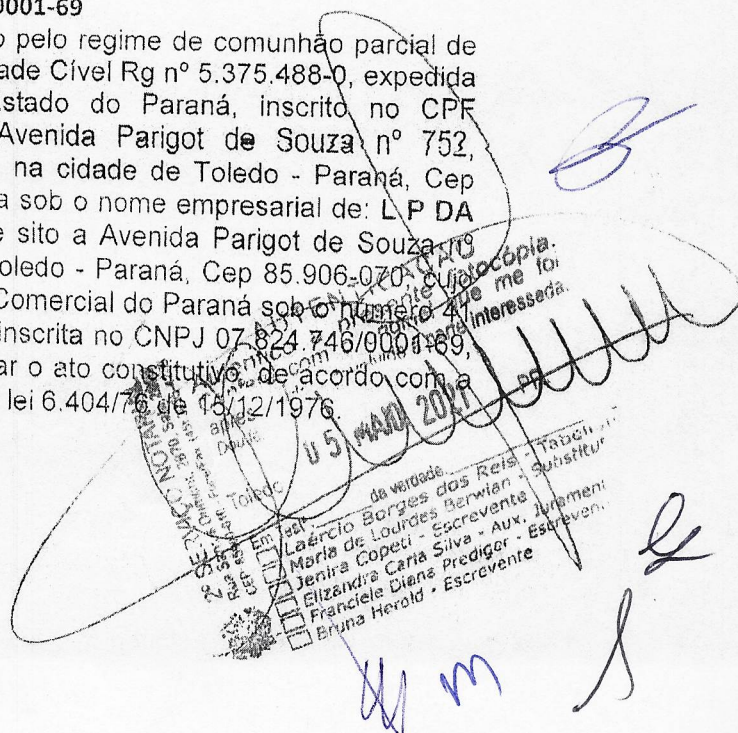 0001-69
o pelo regime de comunhão parcial de
ade Cível Rg nº 5.375.488-0, expedida
stado do Paraná, inscrito no CPF
Avenida Parigot de Souza nº 752,
na cidade de Toledo - Paraná, Cep
a sob o nome empresarial de: L P DA
e sito a Avenida Parigot de Souza nº
oledo - Paraná, Cep 85.906-070, cujo
Comercial do Paraná sob o número 41
inscrita no CNPJ 07.824.746/0001-69,
ar o ato constitutivo, de acordo com a
lei 6.404/76 de 15/12/1976.
AUTENTICAÇÃO
presente fotocópia
que me foi
interessada.
05 MAIO 2021 PR
Toledo
da verdade
Laércio Borges dos Reis - Tabeli
Maria de Lourdes Berwian - Substitu
Jenira Copeti - Escrevente
Elizandra Carla Silva - Aux. Jurament
Franciele Diana Prediger - Escreven
Bruna Herold - Escrevente
2º SERVIÇO NOTAR